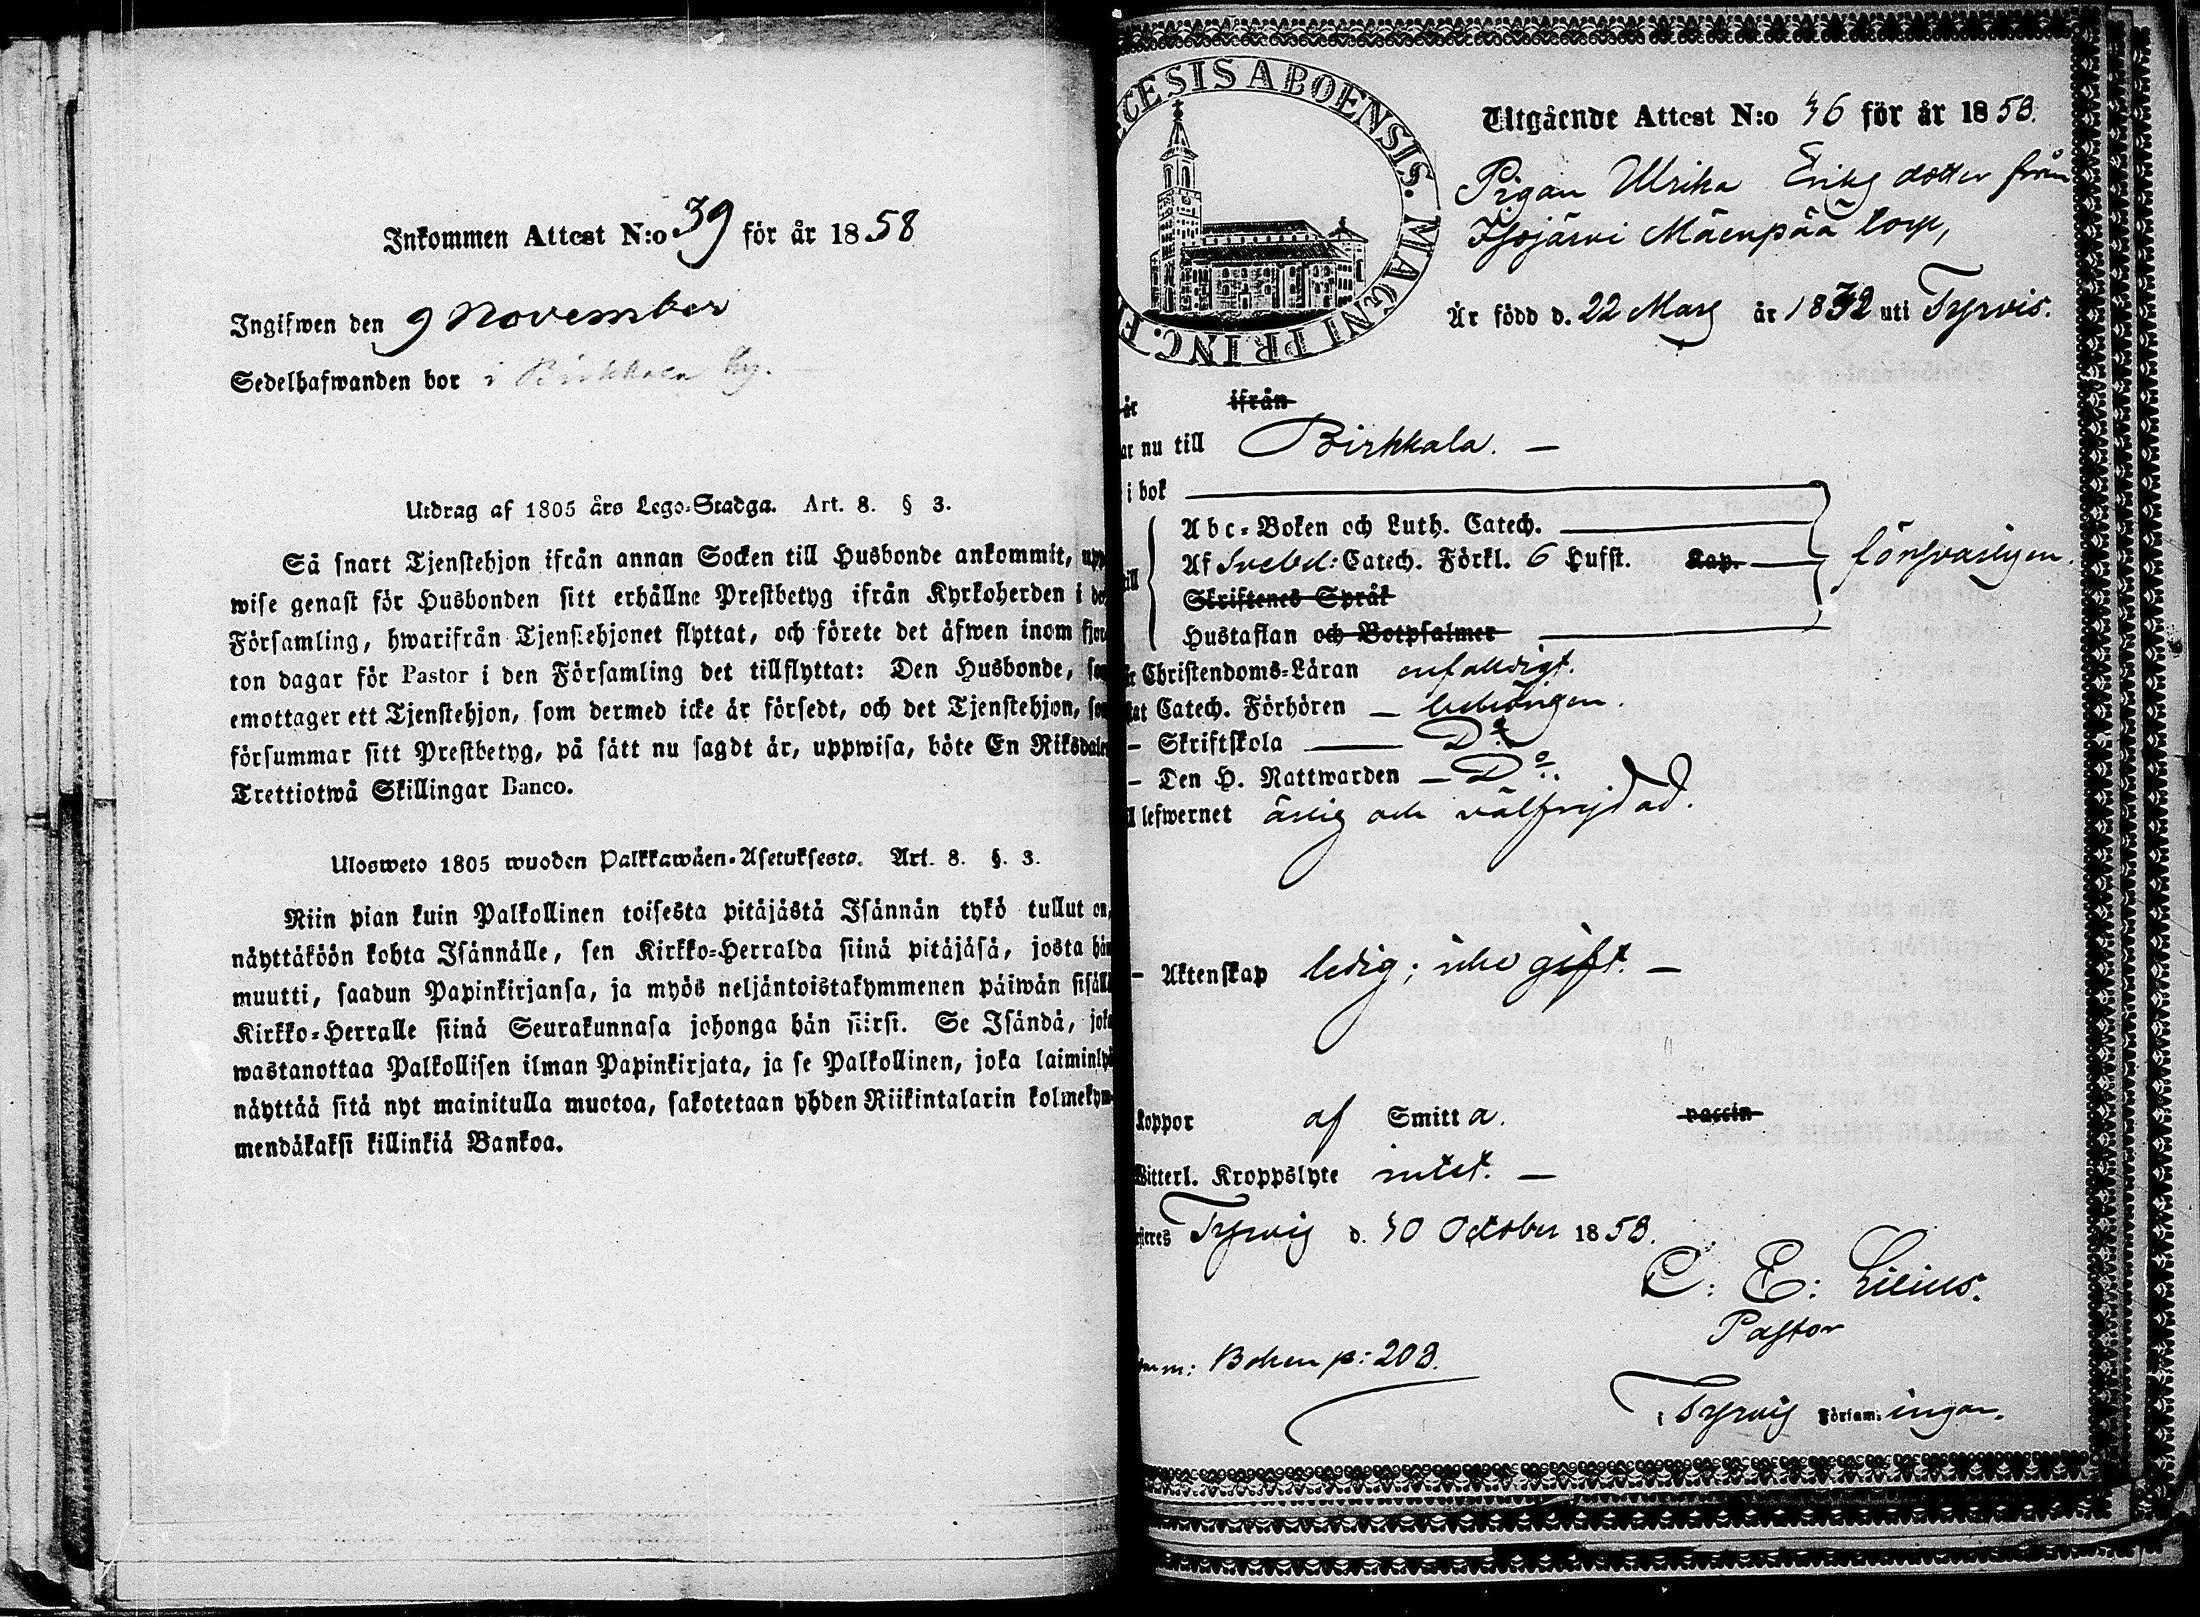 Inkommen Attest N:o 39 för år 1858
Ingifwen den 9 November
Sedelhafwanden bor i Birkkala by.
Utdrag af 1805 års Lego-Stadga. Art. 8. § 3.
Så snart Tjenstehjon ifrån annan Socken till Husbonde ankommit, upp
wise genast för Husbonden sitt erhållne Prestbetyg ifrån Kyrkoherden i de
Församling, hwarifrån Tjenstehjonet flyttat, och förete det äfwen inom fjor
ton dagar för Pastor i den Församling det tillflyttat: Den Husbonde, so
emottager ett Tjenstehjon, som dermed icke är försedt, och det Tjenstehjon, so
försummar sitt Prestbetyg, på sätt nu sagdt är, uppwisa, böte En Riksdale
Trettiotwå Skillingar Banco.
Ulosweto 1805 wuoden Palkkawäen-Asetuksesta. Art. 8. §. 3.
Niin pian kuin Palkollinen toisesta pitäjästä Isännän tykö tullut on,
näyttäköön kohta Isännälle, sen Kirkko-Herralda siinä pitäjäsä, josta hän
muutti, saadun Papinkirjansa, ja myös neljäntoistakymmenen päiwän sisäll
Kirkko-Herralle siinä Seurakunnasa johonga hän siirsi. Se Isändä, joka
wastanottaa Palkollisen ilman Papinkirjata, ja se Palkollinen, joka laiminlyö
näyttää sitä nyt mainitulla muotoa, sakotetaan yhden Riikintalarin kolmekym-
mendäkaksi killinkiä Bankoa.
CESIS ABOENSIS. MAGNI PRINC. F
Utgående Attest N:o 36 för år 1858.
Pigan Ulrika Eriksdotter från
Isojärvi Mäenpää torp,
Är född d. 22 Mars år 1832 uti Tyrvis.
är ifrån
ar nu till Birkkala. —
i bok
Abc-Boken och Luth. Catech.
Af Svebel: Catech. Förkl. 6 Hufst. Kap. försvarligen.
till
Skriftenes Språk
Hustaflan och Botpsalmer
Christendoms-Läran enfaldigt.
tat Catech. Förhören — behörigen.
— Skriftskola — Do
— Den H. Nattwarden — Do.
ll lefwernet ärlig och välfrejdad.
— Äktenskap ledig; icke gift. —
koppor af Smitta. vaccin
Witterl. Kroppslyte intet. —
Tyrvis d. 30 October 1858.
C. E. Lilius.
Pastor
Boken p: 208.
i Tyrvis Församlingar.